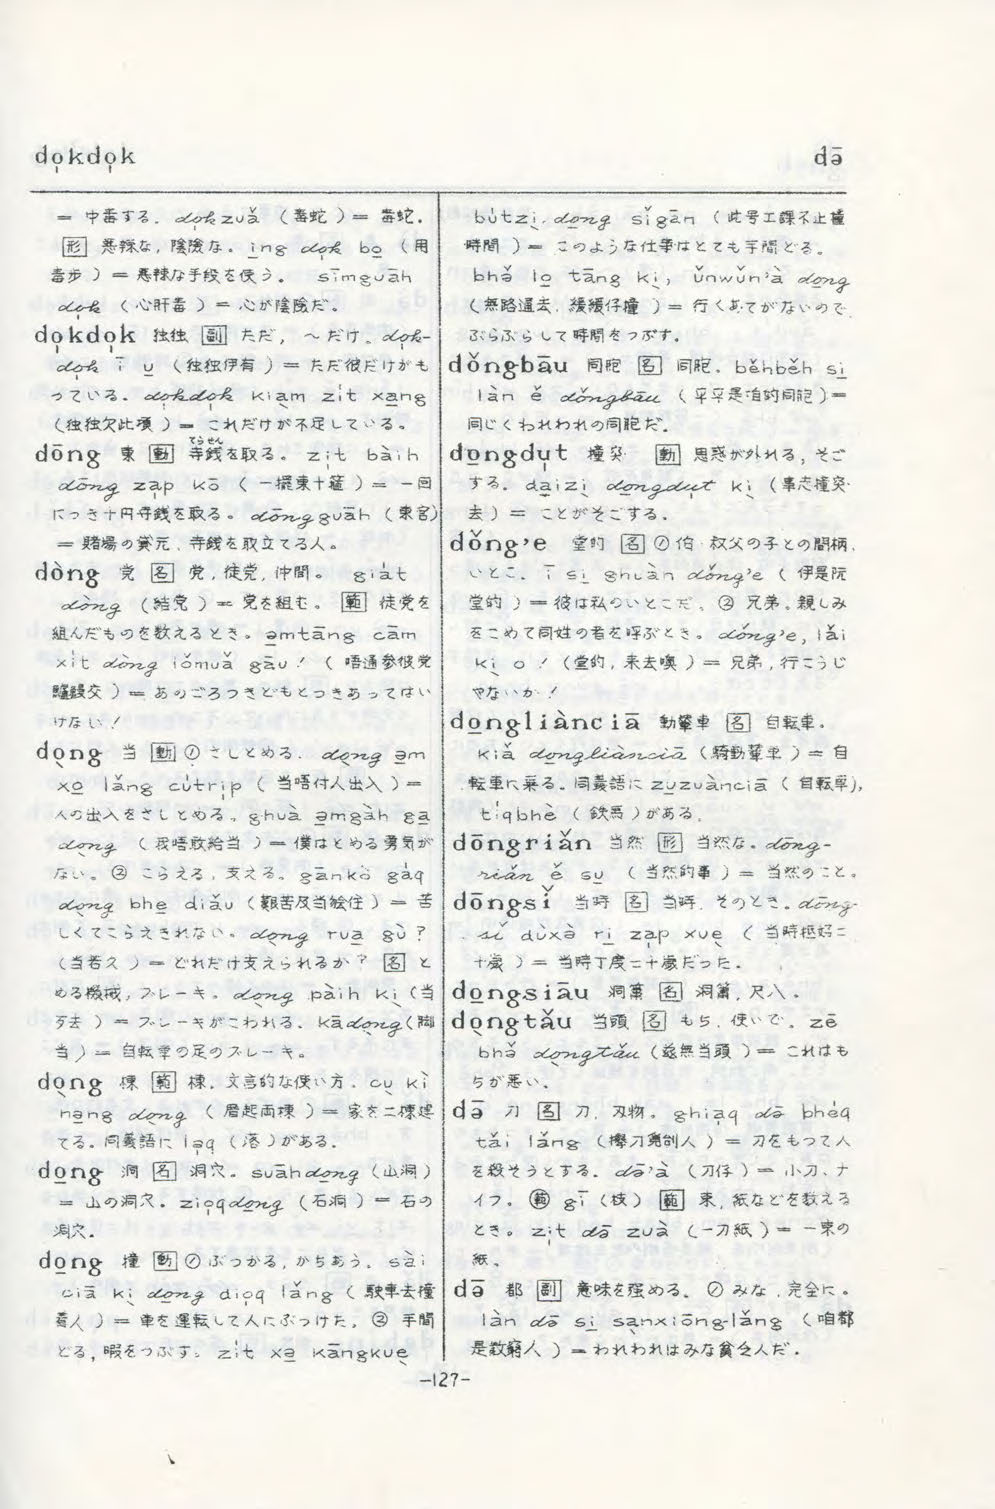 dok̩dok̩
də̄
= 中毒する. dok̩zuǎ (毒蛇) = 毒蛇.
形 悪辣な, 陰険な。 ing dok̩ bo̠ (用
毒步) = 悪辣な手段を使う。 sīmguāh
dok̩ (心肝毒) = 心が陰険だ。
dok̩dok̩ 独独 副 ただ, ～だけ。 dok̩-
dok̩ ī u̠ (独独伊有) = ただ彼だけがも
っている。 dok̩dok̩ kiam zit xang
(独独欠此項) = これだけが不足している。
dōng 東 動 寺銭を取る。 zit bàih
てらせん
dōng zap kō (一擺東十箍) = 一回
につき十円寺銭を取る。 dōngguāh (東官)
= 賭場の貸元, 寺銭を取立てる人。
dòng 党 名 党, 徒党, 仲間。 giat
dòng (結党) = 党を組む。 範 徒党を
組んだものを数えるとき。 əmtāng cām
xit dòng iǒmuǎ gāu! (唔通参彼党
交) = あのごろつきどもとつきあってはい
けない!
do̠ng 当 動 ① さしとめる. do̠ng əm
xo̠ lǎng cútrip (当唔付人出入) =
人の出入をさしとめる。 ghuà əmgàh ga̠
do̠ng (我唔敢給当) = 僕はとめる勇気が
ない。 ② こらえる, 支える。 gānkò gáq
do̠ng bhe̠ diǎu (艱苦及当絵住) = 苦
しくてこらえきれない。 do̠ng rua̠ gù?
(当若久) = どれだけ支えられるか? 名 と
める機械, ブレーキ。 do̠ng pàih ki̠ (当
歹去) = ブレーキがこわれる. kādo̠ng (脚
当) = 自転車の足のブレーキ。
do̠ng 棟 範 棟. 文言的な使い方. cu̠ kì
nəng do̠ng (厝起両棟) = 家を二棟建
てる. 同義語に laq (落) がある.
do̠ng 洞 名 洞穴. suāhdo̠ng (山洞)
= 山の洞穴. zioqdo̠ng (石洞) = 石の
洞穴.
do̠ng 撞 動 ① ぶつかる, かちあう. sài
ciā ki̠ do̠ng dioq lǎng (駛車去撞
着人) = 車を運転して人にぶつけた。 ② 手間
どる, 暇をつぶす。 zit xə̠ kāngkue̠
bútzi̠ do̠ng sǐgān (此号工課不止撞
時間) = このような仕事はとても手間どる。
bhǒ lo̠ tāng ki̠, ǔnwǔn'à do̠ng
(無路通去, 緩緩仔撞) = 行くあてがないので
ぶらぶらして時間をつぶす。
dǒngbāu 同胞 名 同胞. běhběh si̠
làn ě dǒngbāu (平平是咱的同胞) =
同じくわれわれの同胞だ.
do̠ngdut 撞突 動 思惑が外れる, そご
する. da̠izi̠ do̠ngdut ki̠ (事志撞突
去) = ことがそごする.
dǒng'e 堂的 名 ① 伯・叔父の子との間柄,
いとこ. ī si̠ ghuàn dǒng'e (伊是阮
堂的) = 彼は私のいとこだ. ② 兄弟. 親しみ
をこめて同姓の者を呼ぶとき。 dǒng'e, lǎi
ki̠ o! (堂的, 来去噢) = 兄弟, 行こうじ
ゃないか!
do̠ngliànciā 動輦車 名 自転車.
kiǎ do̠ngliànciā (騎動輦車) = 自
転車に乗る. 同義語に zu̠zuànciā (自転車),
tiqbhè (鉄馬) がある.
dōngriǎn 当然 形 当然な. dōng-
riǎn ě su̠ (当然的事) = 当然のこと。
dōngsǐ 当時 名 当時, そのとき。 dōng-
sǐ dùxà ri̠ zap xue̠ (当時抵好二
十歳) = 当時丁度二十歳だった.
do̠ngsiāu 洞簫 名 洞簫, 尺八.
do̠ngtǎu 当頭 名 もち, 使いで. zē
bhǒ do̠ngtǎu (兹無当頭) = これはも
ちが悪い.
də̄ 刀 名 刀, 刃物. ghiaq də̄ bhéq
tǎi lǎng (攑刀覓刣人) = 刀をもって人
を殺そうとする. də̄'à (刀仔) = 小刀, ナ
イフ。 範 gī (枝) 範 束, 紙などを数える
とき。 zit də̄ zuà (一刀紙) = 一束の
紙.
də̄ 都 副 意味を強める. ① みな, 完全に.
làn də̄ si̠ sa̠nxiōng-lǎng (咱都
是散窮人) = われわれはみな貧乏人だ.
-127-